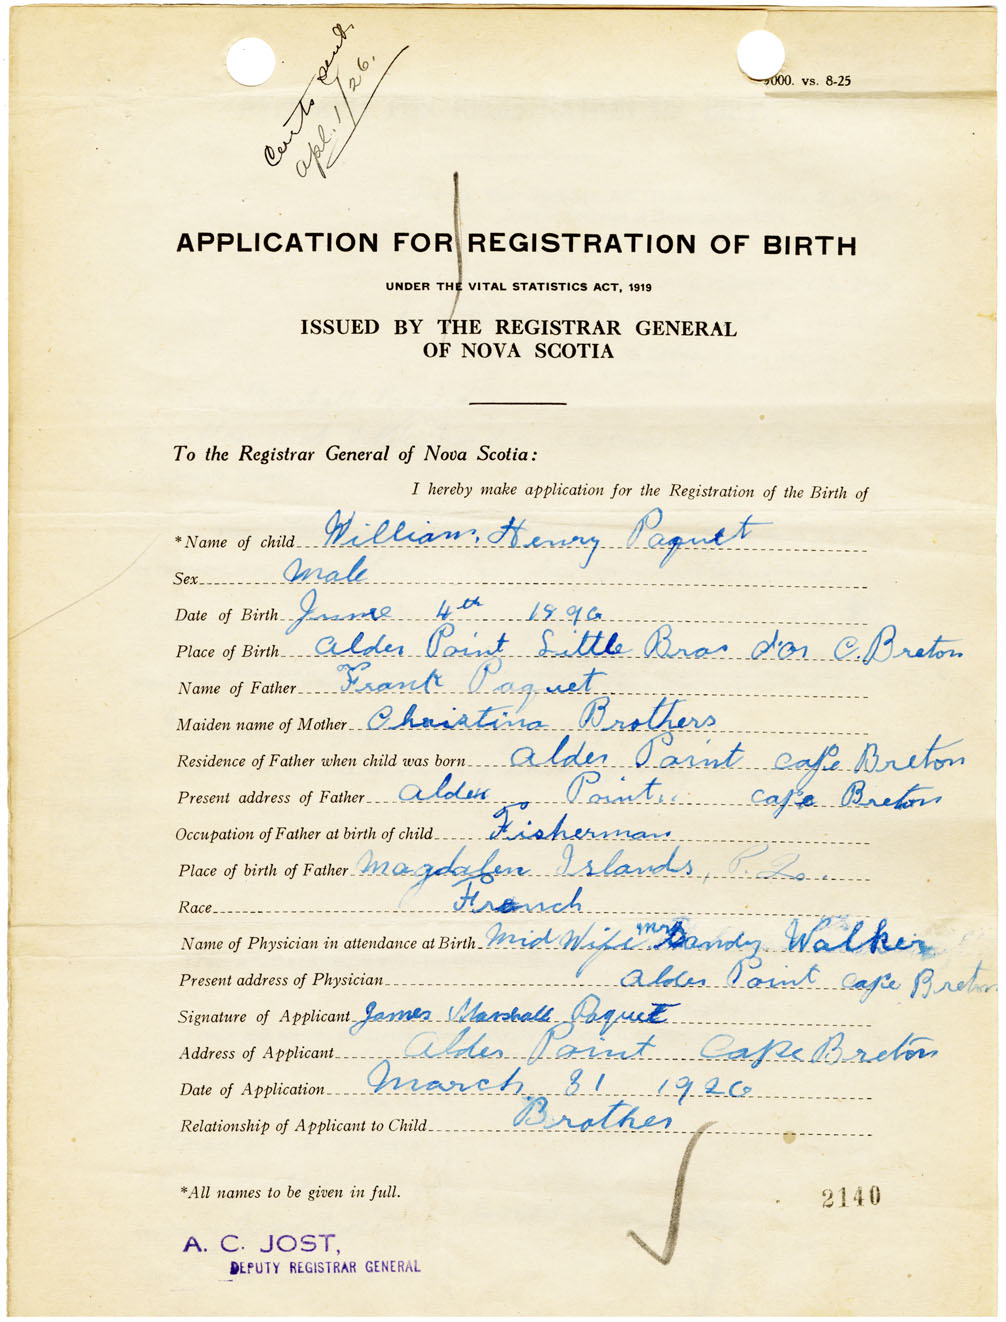 Certs sent
Apl. 1/26.
000. vs. 8-25
APPLICATION FOR REGISTRATION OF BIRTH
UNDER THE VITAL STATISTICS ACT, 1919
ISSUED BY THE REGISTRAR GENERAL
OF NOVA SCOTIA
To the Registrar General of Nova Scotia:
I hereby make application for the Registration of the Birth of
*Name of child William Henry Paquet
Sex Male
Date of Birth June 4th 1896
Place of Birth Alder Point Little Bras d'or C. Breton
Name of Father Frank Paquet
Maiden name of Mother Christina Brothers
Residence of Father when child was born Alder Point Cape Breton
Present address of Father Alder Point Cape Breton
Occupation of Father at birth of child Fisherman
Place of birth of Father Magdalen Islands, P.Q.
Race French
Name of Physician in attendance at Birth Mid Wife Mrs Sandy Walker
Present address of Physician Alder Point Cape Breton
Signature of Applicant James Marshall Paquet
Address of Applicant Alder Point Cape Breton
Date of Application March 31 1926
Relationship of Applicant to Child Brother
*All names to be given in full.
2140
A. C. JOST,
DEPUTY REGISTRAR GENERAL